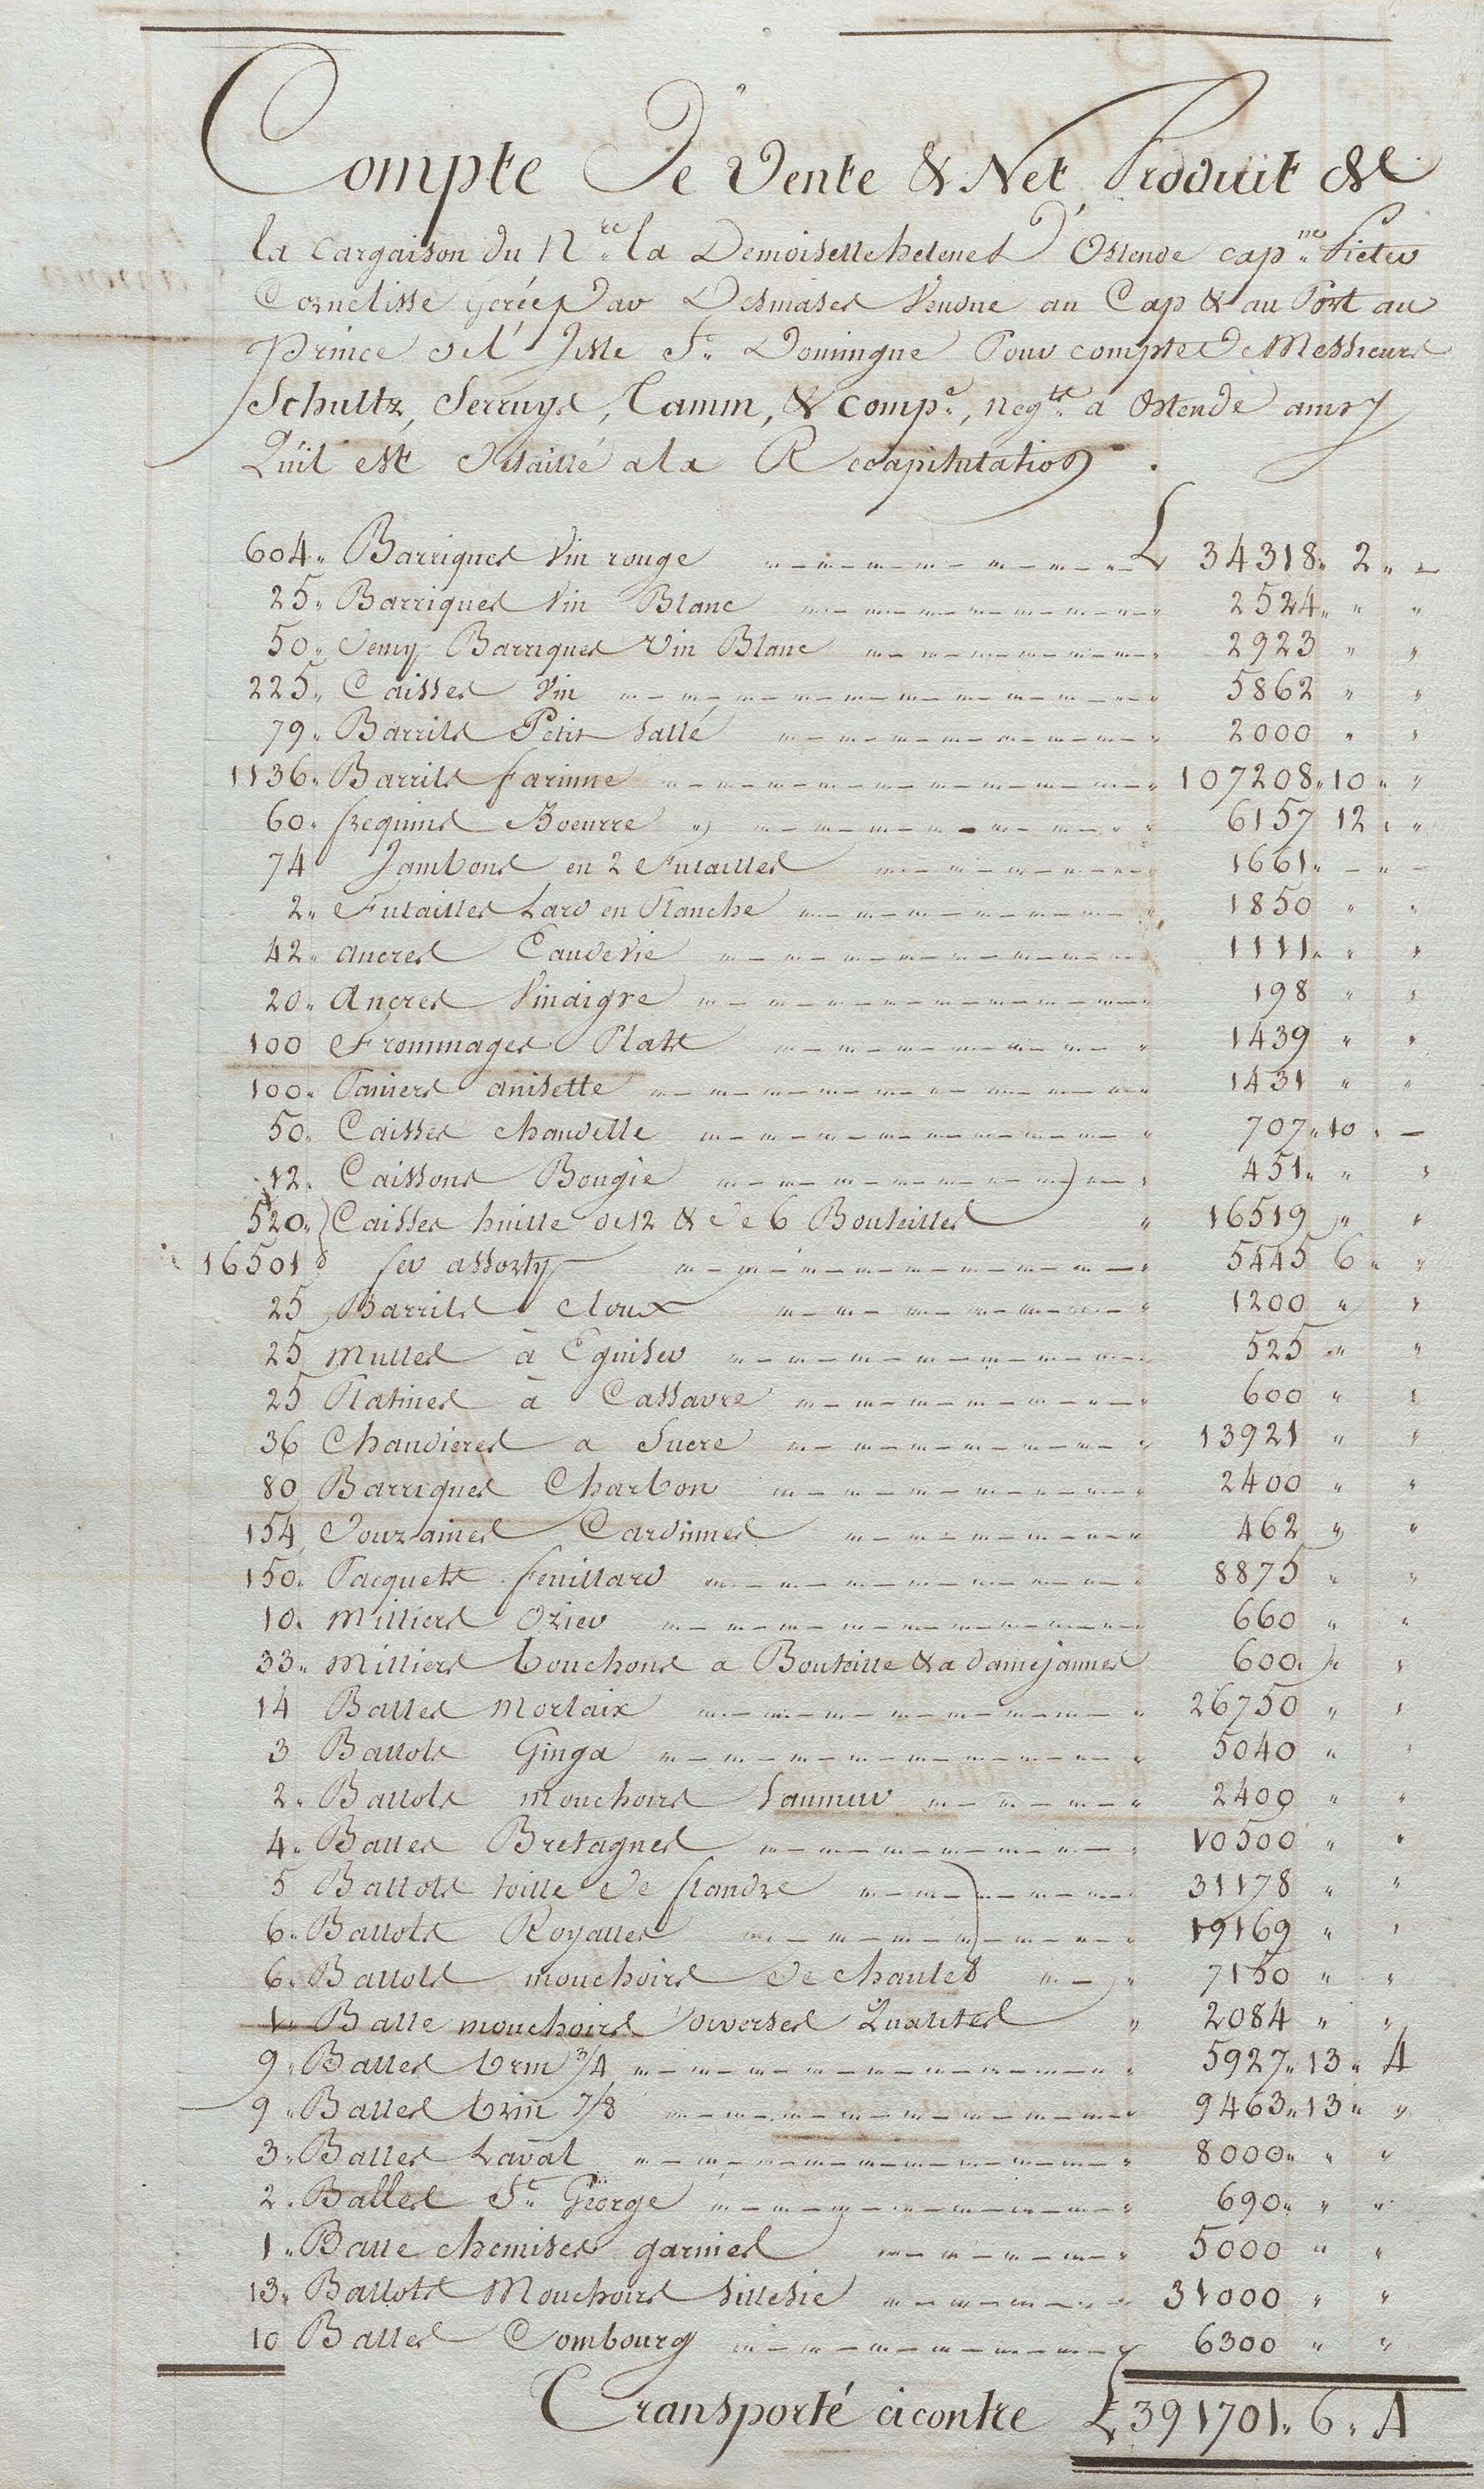 Compte De Vente & Net Produit de
la Cargaison du N.re la Demoiselle helenes D'Ostende cap.ne Pieter
Cornelisse Gerée par Desmases Vendue au Cap & au Port au
Prince de l'Isle S.t Domingue Pour compte de Messieurs
Schultz, Serruys, Camm, & comp.e, neg.ts a Ostende ainsy
Quil est detaillé ala Recapitulation.
604 " Barriques Vin rouge £ 34318 " 2 " –
25 " Barriques Vin Blanc " 2524 " " "
50 " demy Barriques Vin Blanc " 2923 " "
225 " Caisses Vin " 5862 " "
79 " Barrils Petit Sallé " 2000 " "
1136 " Barrils farinne " 107208 " 10 " "
60 " frequins Boeurre " " 6157 12 " "
74 Jambons en 2 Futailles " 1661 " – " –
2 " Futailles Lard en Planche " 1850 " "
42 " ancres Eaudevie 1111 " " "
20 " Ancres Vinaigre " 198 " "
100 Frommages Plats " 1439 " "
100 " Paniers anisette " 1431 " "
50 " Caisses chandelle " 707 " 10 " –
12 " Caissons Bougie " 451 " " "
520 " Caisses huille de 12 & de 6 Bouteilles " 16519 " "
16501 d fer assorty " 5445 6 " "
25 Barrils cloux " 1200 " "
25 mulles à Eguiser 525 " "
25 Platines à Cassavre " 600 " "
36 Chaudieres a Sucre " 13921 " "
80 Barriques Charbon " 2400 " "
154 douzaines Cardinnes " 462 " "
150 " Pacquets feuillard " 8875 " "
10 " milliers Ozier " 660 " "
33 " milliers bouchons a Bouteille & a damejannes 600 " " "
14 Balles Morlaix " 26750 " "
3 Ballots Ginga " 5040 " "
2 " Ballots mouchoirs Saumur " 2400 " "
4 " Balles Bretagnes " 10500 " "
5 Ballots toille de flandre 31178 " "
6 " Ballots Royalles " 19169 " "
6 " Ballots mouchoirs de chaules " 7150 " "
1 " Balle mouchoirs diverses Qualites " 2084 " "
9 " Balles brin 3/4 " 5927 " 13 " 4
9 " Balles brin 7/8 " 9463 " 13 " "
3 " Balles Laval " 8000 " " "
2 " Balles S.t George " 690 " " "
1 " Balle chemises garnies " 5000 " "
13 " Ballots Mouchoirs Sillesie " 31000 " "
10 Balles Combourg " 6300 " "
Transporté cicontre £ 391701 " 6 " 4